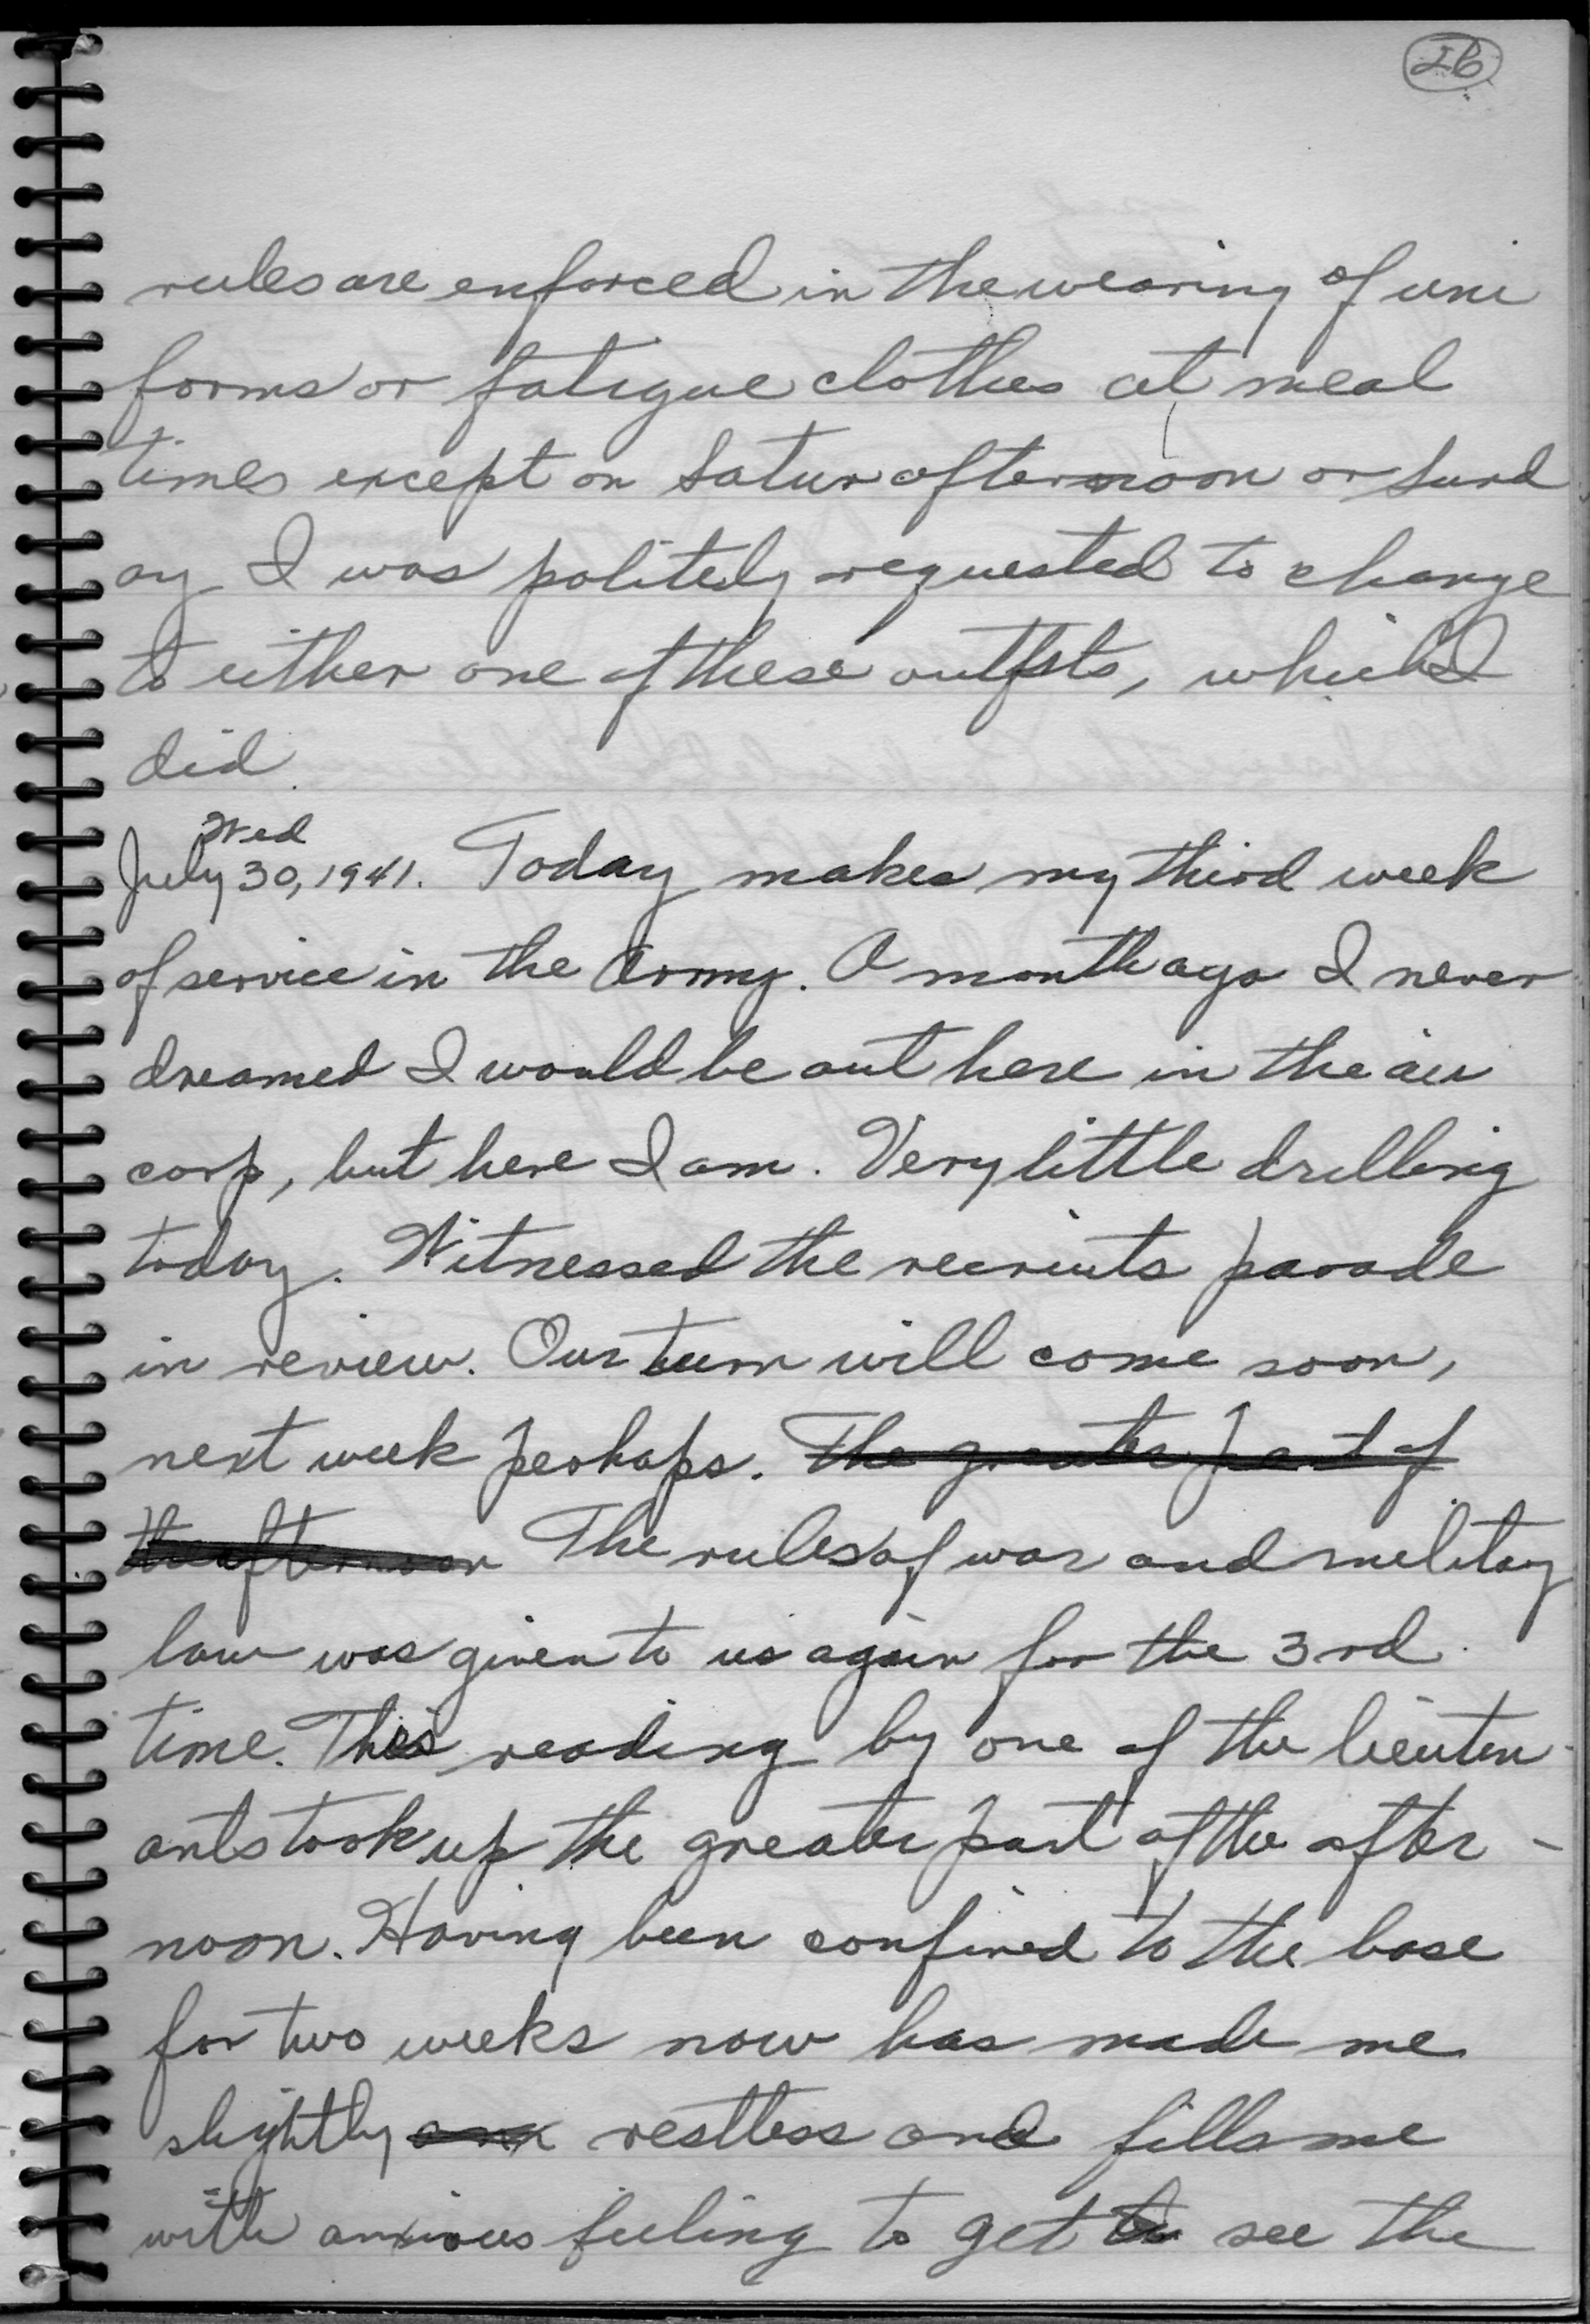 26
rules are enforced in the wearing of uni
forms or fatigue clothes at meal
times except on Satur afternoon or Sund
ay I was politely requested to change
to either one of these outfits, which I
did.
Wed
July 30, 1941. Today makes my third week
of service in the Army. A month ago I never
dreamed I would be out here in the air
corp, but here I am. Very little drilling
today. Witnessed the recruits parade
in review. Our turn will come soon,
next week perhaps. The greater part of
the afternoon The rules of war and military
law was given to us again for the 3rd
time. This reading by one of the lieuten-
ants took up the greater part of the after-
noon. Having been confined to the base
for two weeks now has made me
slightly restless and fills me
with anxious feeling to get to see the